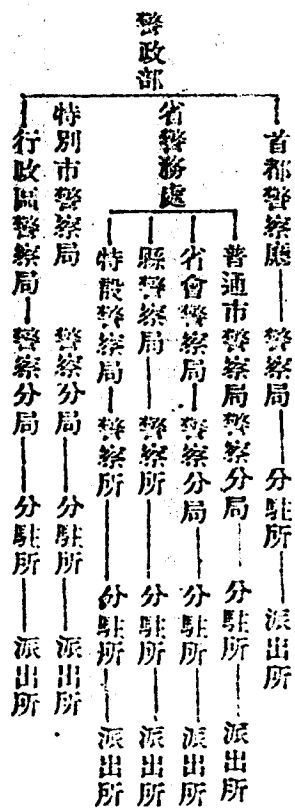 警政部
首都警察廳—警察局—分駐所—派出所
省警務處
普通市警察局—警察分局—分駐所—派出所
省會警察局—警察分局—分駐所—派出所
縣警察局—警察所—分駐所—派出所
特設警察局—警察所—分駐所—派出所
特別市警察局—警察分局—分駐所—派出所
行政區警察局—警察分局—分駐所—派出所